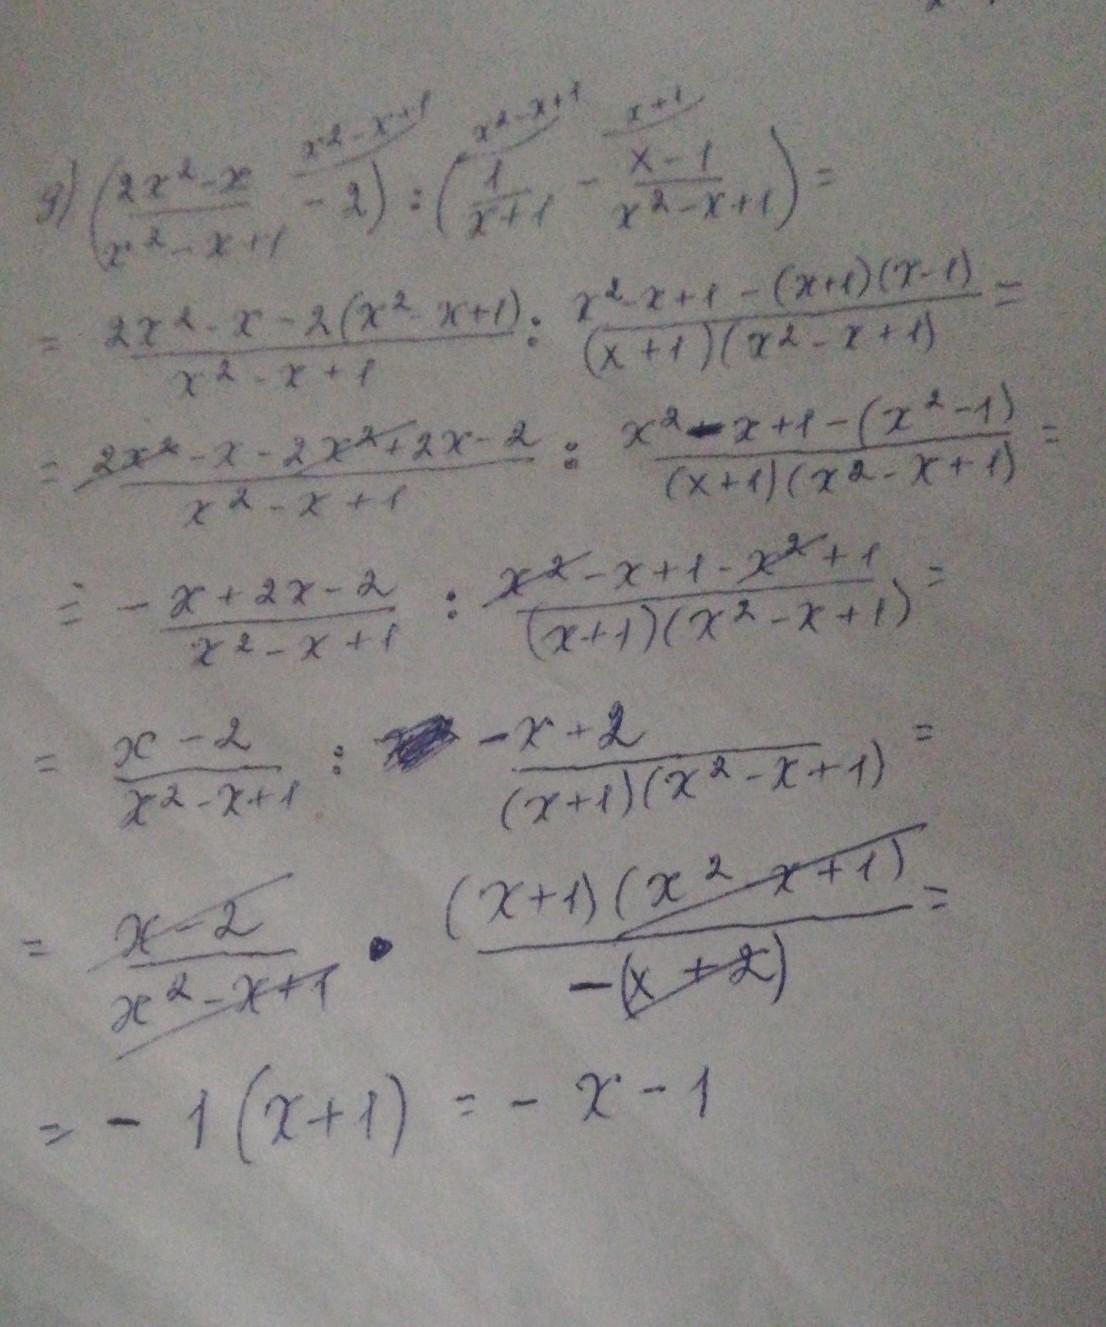 x²-x+1 x²-x+1 x+1
g) (2x²-x/x²-x+1 - 2) : (1/x+1 - x-1/x²-x+1) =
= 2x²-x-2(x²-x+1)/x²-x+1 : x²-x+1-(x+1)(x-1)/(x+1)(x²-x+1) =
= 2x²-x-2x²+2x-2/x²-x+1 : x²-x+1-(x²-1)/(x+1)(x²-x+1) =
= -x+2x-2/x²-x+1 : x²-x+1-x²+1/(x+1)(x²-x+1) =
= x-2/x²-x+1 : -x+2/(x+1)(x²-x+1) =
= x-2/x²-x+1 • (x+1)(x²-x+1)/-(x+2) =
= -1(x+1) = -x-1